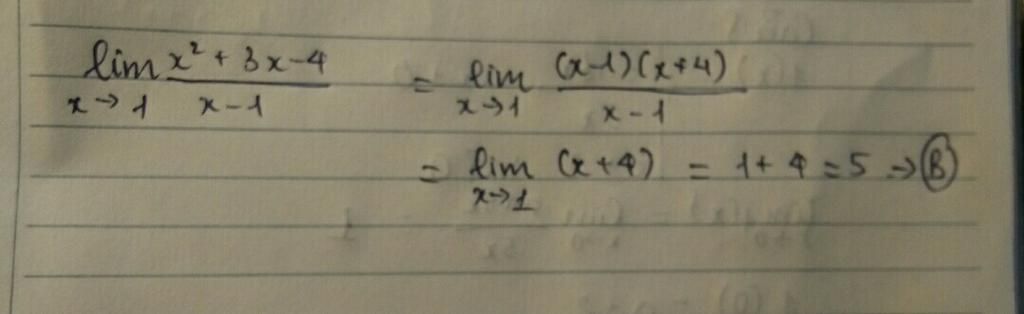 lim x→1 (x² + 3x - 4)/(x - 1) = lim x→1 ((x-1)(x+4))/(x - 1)
= lim x→1 (x+4) = 1 + 4 = 5 → B